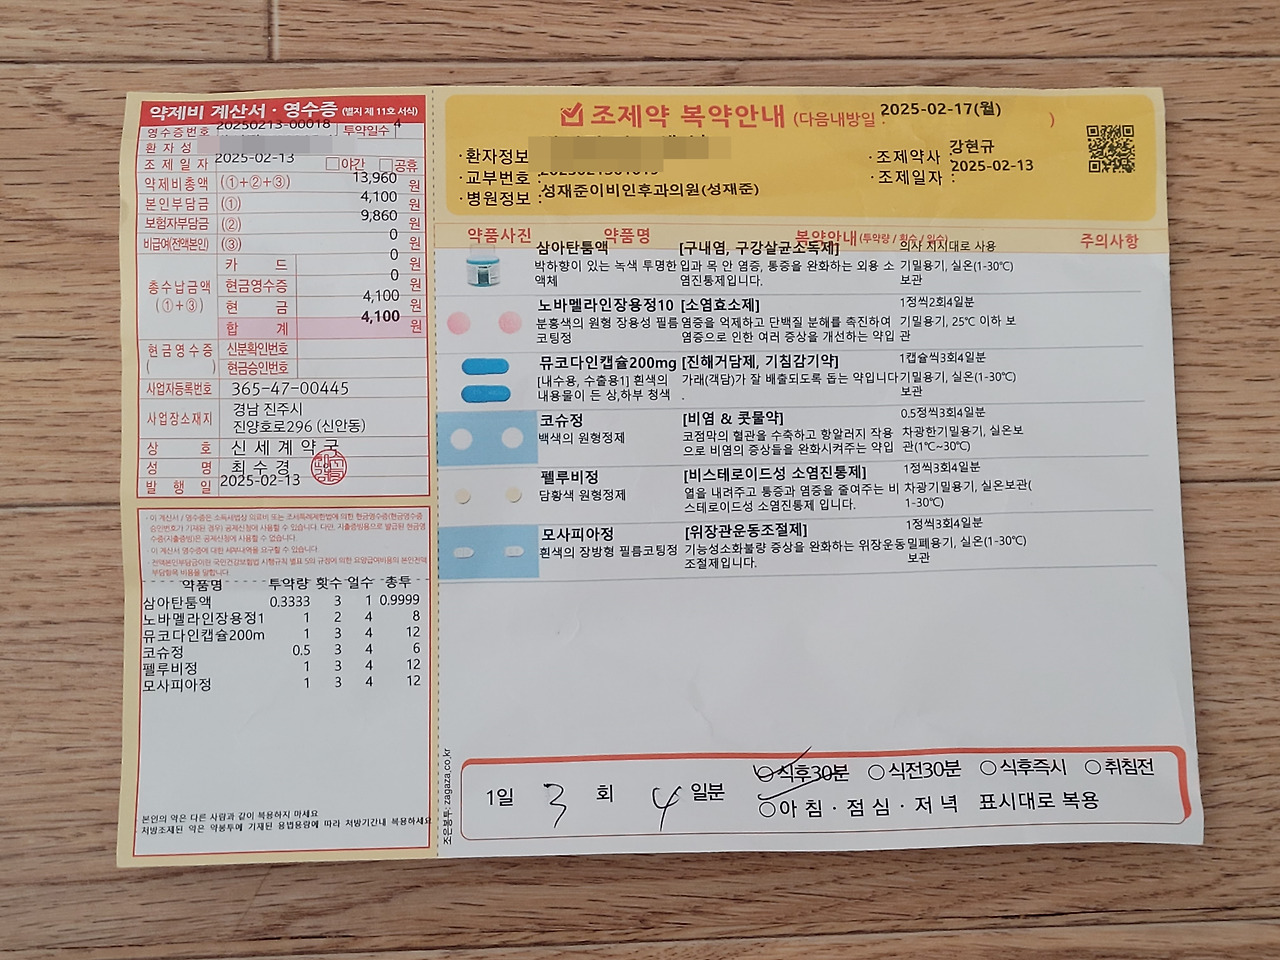 약제비 계산서 · 영수증 (별지 제 11호 서식)
영수증번호 20250213-00018 투약일수 4
환 자 성
조 제 일 자 2025-02-13 □야간 □공휴
약제비총액 (①+②+③) 13,960 원
본인부담금 (①) 4,100 원
보험자부담금 (②) 9,860 원
비급여(전액본인) (③) 0 원
총수납금액 (①+③)
카 드 0 원
현금영수증 0 원
현 금 4,100 원
합 계 4,100 원
현금영수증 ( )
신분확인번호
현금승인번호
사업자등록번호 365-47-00445
사업장소재지 경남 진주시
진양호로296 (신안동)
상 호 신세계약국
성 명 최수경
발 행 일 2025-02-13
· 이 계산서 / 영수증은 소득세법상 의료비 또는 조세특례제한법에 의한 현금영수증(현금영수증
승인번호가 기재된 경우) 공제신청에 사용할 수 있습니다. 다만, 지출증빙용으로 발급된 현금영
수증(지출증빙)은 공제신청에 사용할 수 없습니다.
· 이 계산서 영수증에 대한 세부내역을 요구할 수 있습니다.
· 전액본인부담금이란 국민건강보험법 시행규칙 별표 5의 규정에 의한 요양급여비용의 본인전액
부담항목 비용을 말합니다.
약품명 투약량 횟수 일수 총투
삼아탄툼액 0.3333 3 1 0.9999
노바멜라인장용정1 1 2 4 8
뮤코다인캡슐200m 1 3 4 12
코슈정 0.5 3 4 6
펠루비정 1 3 4 12
모사피아정 1 3 4 12
본인의 약은 다른 사람과 같이 복용하지 마세요
처방조제된 약은 약봉투에 기재된 용법용량에 따라 처방기간내 복용하세요
조은봉투: zagaza.co.kr
조제약 복약안내 (다음내방일 : 2025-02-17(월) )
· 환자정보
· 교부번호 :
· 병원정보 : 성재준이비인후과의원(성재준)
· 조제약사 : 강현규
· 조제일자 : 2025-02-13
약품사진 약품명 복약안내 (투약량 / 횟수 / 일수) 주의사항
삼아탄툼액 [구내염, 구강살균소독제] 의사 지시대로 사용
박하향이 있는 녹색 투명한 액체
입과 목 안 염증, 통증을 완화하는 외용 소염진통제입니다.
기밀용기, 실온(1-30℃) 보관
노바멜라인장용정10 [소염효소제] 1정씩2회4일분
분홍색의 원형 장용성 필름코팅정
염증을 억제하고 단백질 분해를 촉진하여 염증으로 인한 여러 증상을 개선하는 약입
기밀용기, 25℃ 이하 보관
뮤코다인캡슐200mg [진해거담제, 기침감기약] 1캡슐씩3회4일분
[내수용, 수출용1] 흰색의 내용물이 든 상,하부 청색
가래(객담)가 잘 배출되도록 돕는 약입니다.
기밀용기, 실온(1-30℃) 보관
코슈정 [비염 & 콧물약] 0.5정씩3회4일분
백색의 원형정제
코점막의 혈관을 수축하고 항알러지 작용으로 비염의 증상들을 완화시켜주는 약입
차광한기밀용기, 실온보관(1℃~30℃)
펠루비정 [비스테로이드성 소염진통제] 1정씩3회4일분
담황색 원형정제
열을 내려주고 통증과 염증을 줄여주는 비스테로이드성 소염진통제 입니다.
차광기밀용기, 실온보관(1-30℃)
모사피아정 [위장관운동조절제] 1정씩3회4일분
흰색의 장방형 필름코팅정
기능성소화불량 증상을 완화하는 위장운동조절제입니다.
밀폐용기, 실온(1-30℃) 보관
1일 3 회 4 일분
○식후30분 ○식전30분 ○식후즉시 ○취침전
○아침 · 점심 · 저녁 표시대로 복용